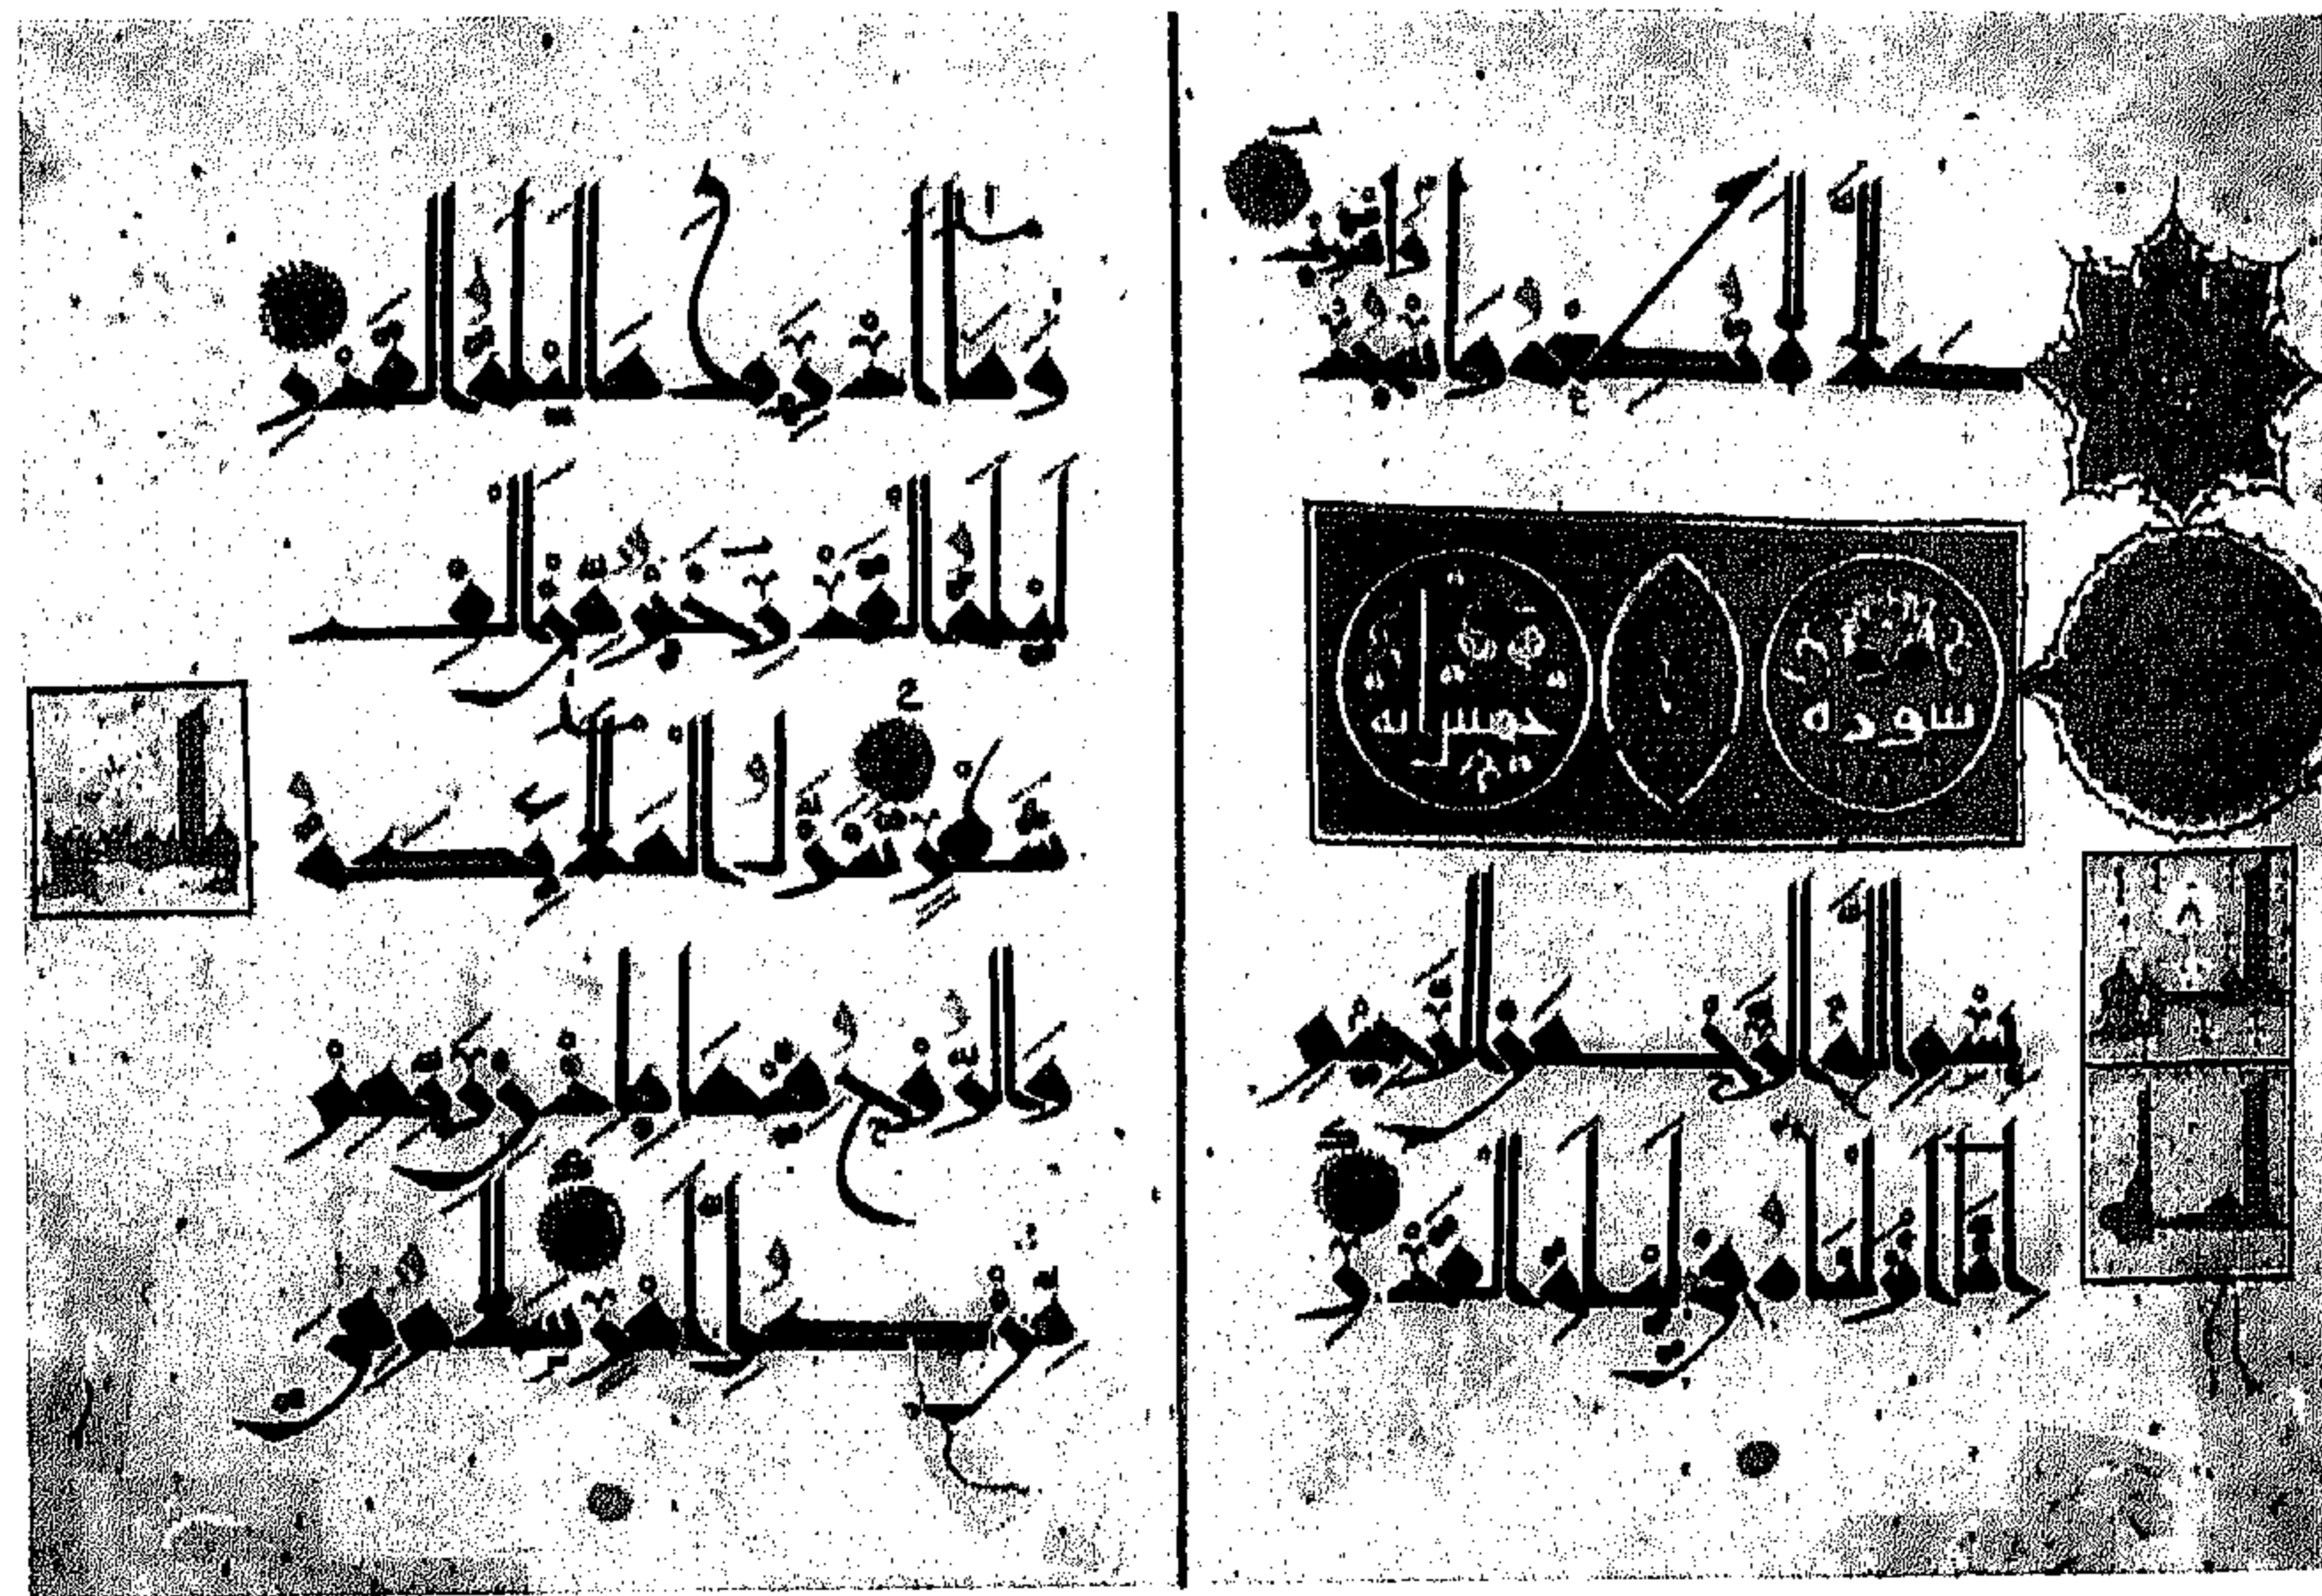 كَلَّا لَا تُطِعْهُ وَاسْجُدْ وَاقْتَرِبْ
سورة
خمس آية
بِسْمِ اللَّهِ الرَّحْمَنِ الرَّحِيمِ
إِنَّا أَنْزَلْنَاهُ فِي لَيْلَةِ الْقَدْرِ
وَمَا أَدْرَيكَ مَا لَيْلَةُ الْقَدْرِ
لَيْلَةُ الْقَدْرِ خَيْرٌ مِنْ أَلْفِ
شَهْرٍ تَنَزَّلُ الْمَلَئِكَةُ
وَالرُّوحُ فِيهَا بِإِذْنِ رَبِّهِمْ
مِنْ كُلِّ أَمْرٍ سَلَمٌ هِيَ